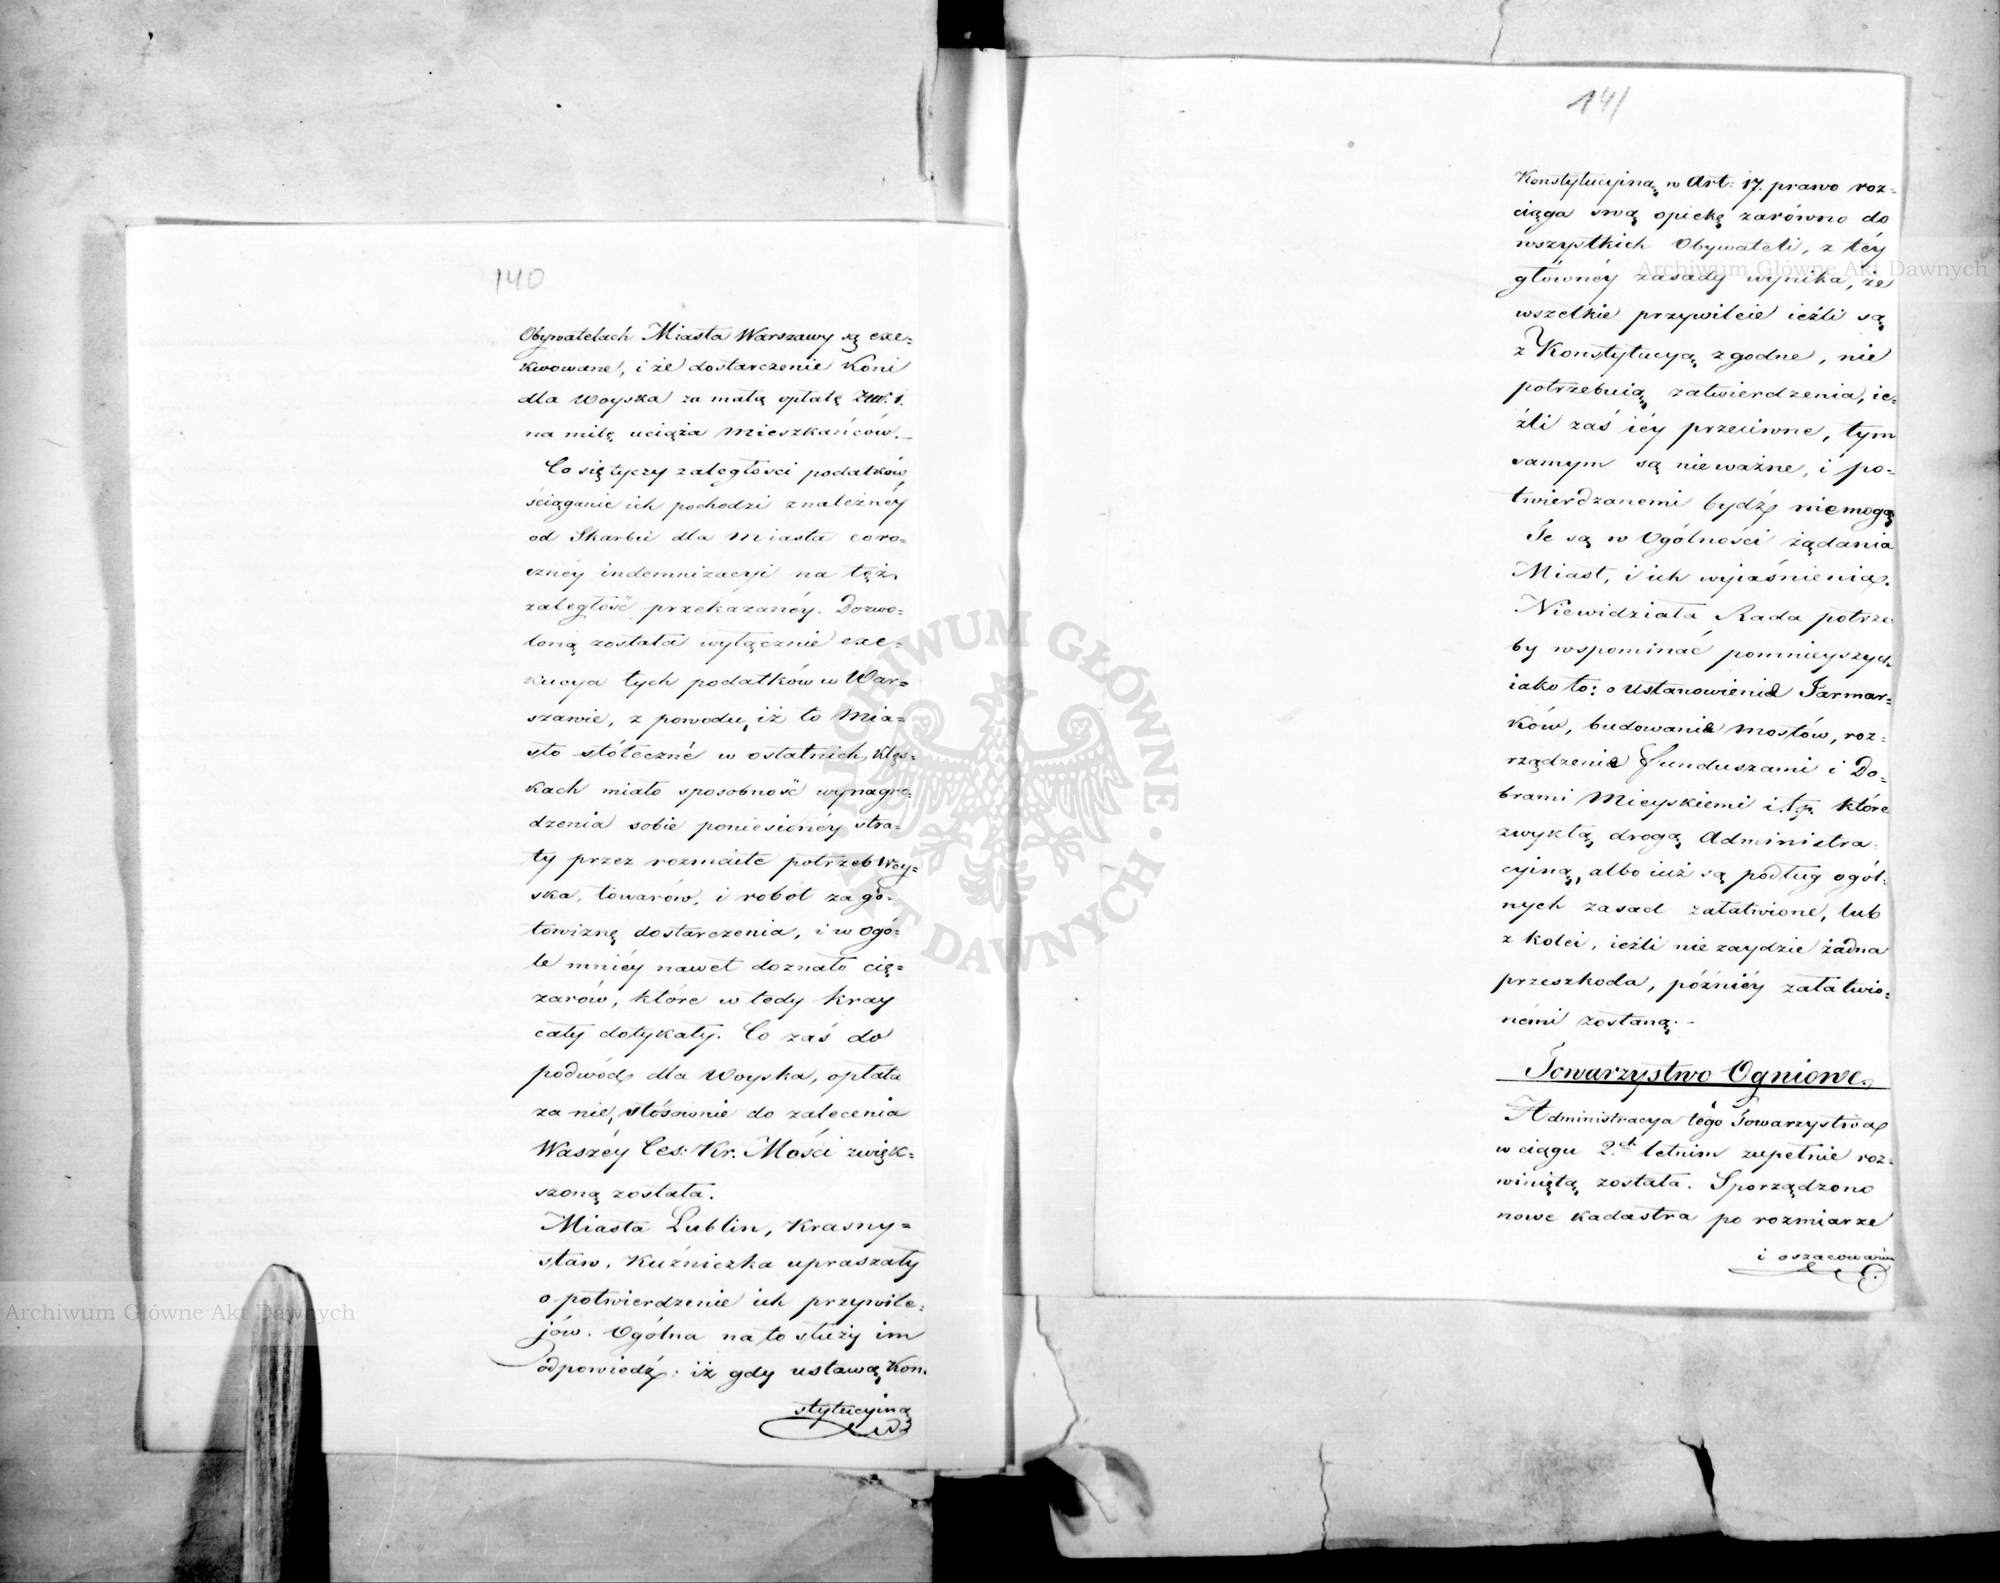 140
Obywatelach Miasta Warszawy są exe=
kwowane, i że dostarczenie koni
dla Woyska za małą opłatę Złł. 1.
na milę uciąża Mieszkańców._
Co się tyczy zaległości podatków,
ściąganie ich pochodzi z należnéy
od Skarbu dla Miasta coro=
cznéy indemnizacyi na tęż
zaległość przekazanéy. Dozwo=
loną została wyłącznie exe=
kucya tych podatków w War=
szawie, z powodu, iż to Mia=
sto stółeczné w ostatnich klęs=
kach miało sposobność wynagro=
dzenia sobie poniesionéy stra=
ty przez rozmaite potrzeb Woy=
ska, towarów, i robót za go=
towiznę dostarczenia, i w ogó=
le mniéy nawet doznało cię=
żarów, które w tedy kray
cały dotykały. Co zaś do
podwód dla Woyska, opłata
za nie, stósownie do zalecenia
Waszéy Ces: Kr. Mości zwięk=
szoną została.
Miasta Lublin, Krasny=
staw, Kuźniczka upraszały
o potwierdzenie ich przywile=
jów. Ogólna na to służy im
odpowiedź: iż gdy ustawą Kon.
stytucyiną
141
Konstytucyiną w Art: 17. prawo roz=
ciąga swą opiekę zarówno do
wszystkich Obywateli, z téy
głównéy zasady wynika, że
wszelkie przywileie ieźli są
z Konstytucyą zgodne, nie
potrzebuią zatwierdzenia, ie=
źli zaś iéy przeciwne, tym
samym są nieważne, i po=
twierdzanemi bydź niemogą
Te są w Ogólności żądania
Miast, i ich wyjaśnienia.
Niewidziała Rada potrze
by wspominać pomnieyszych
iako to: o ustanowienie Jarmar=
ków, budowanie mostów, roz=
rządzenie Funduszami i Do=
brami Mieyskiemi i.t.p. które
zwykłą drogą Administra=
cyiną, albo iuż są podług ogól=
nych zasad załatwione, lub
z kolei, ieźli nie zaydzie żadna
przeszkoda, późniéy załatwio=
némi zostaną._
Towarzystwo Ogniowe.
Administracya tego Towarzystwa
w ciągu 2.ch letnim zupełnie roz=
winiętą została. Sporządzono
nowe kadastra po rozmiarze
i oszacowaniu
Archiwum Główne Akt Dawnych
Archiwum Główne Akt Dawnych
ARCHIWUM GŁÓWNE · AKT DAWNYCH ·